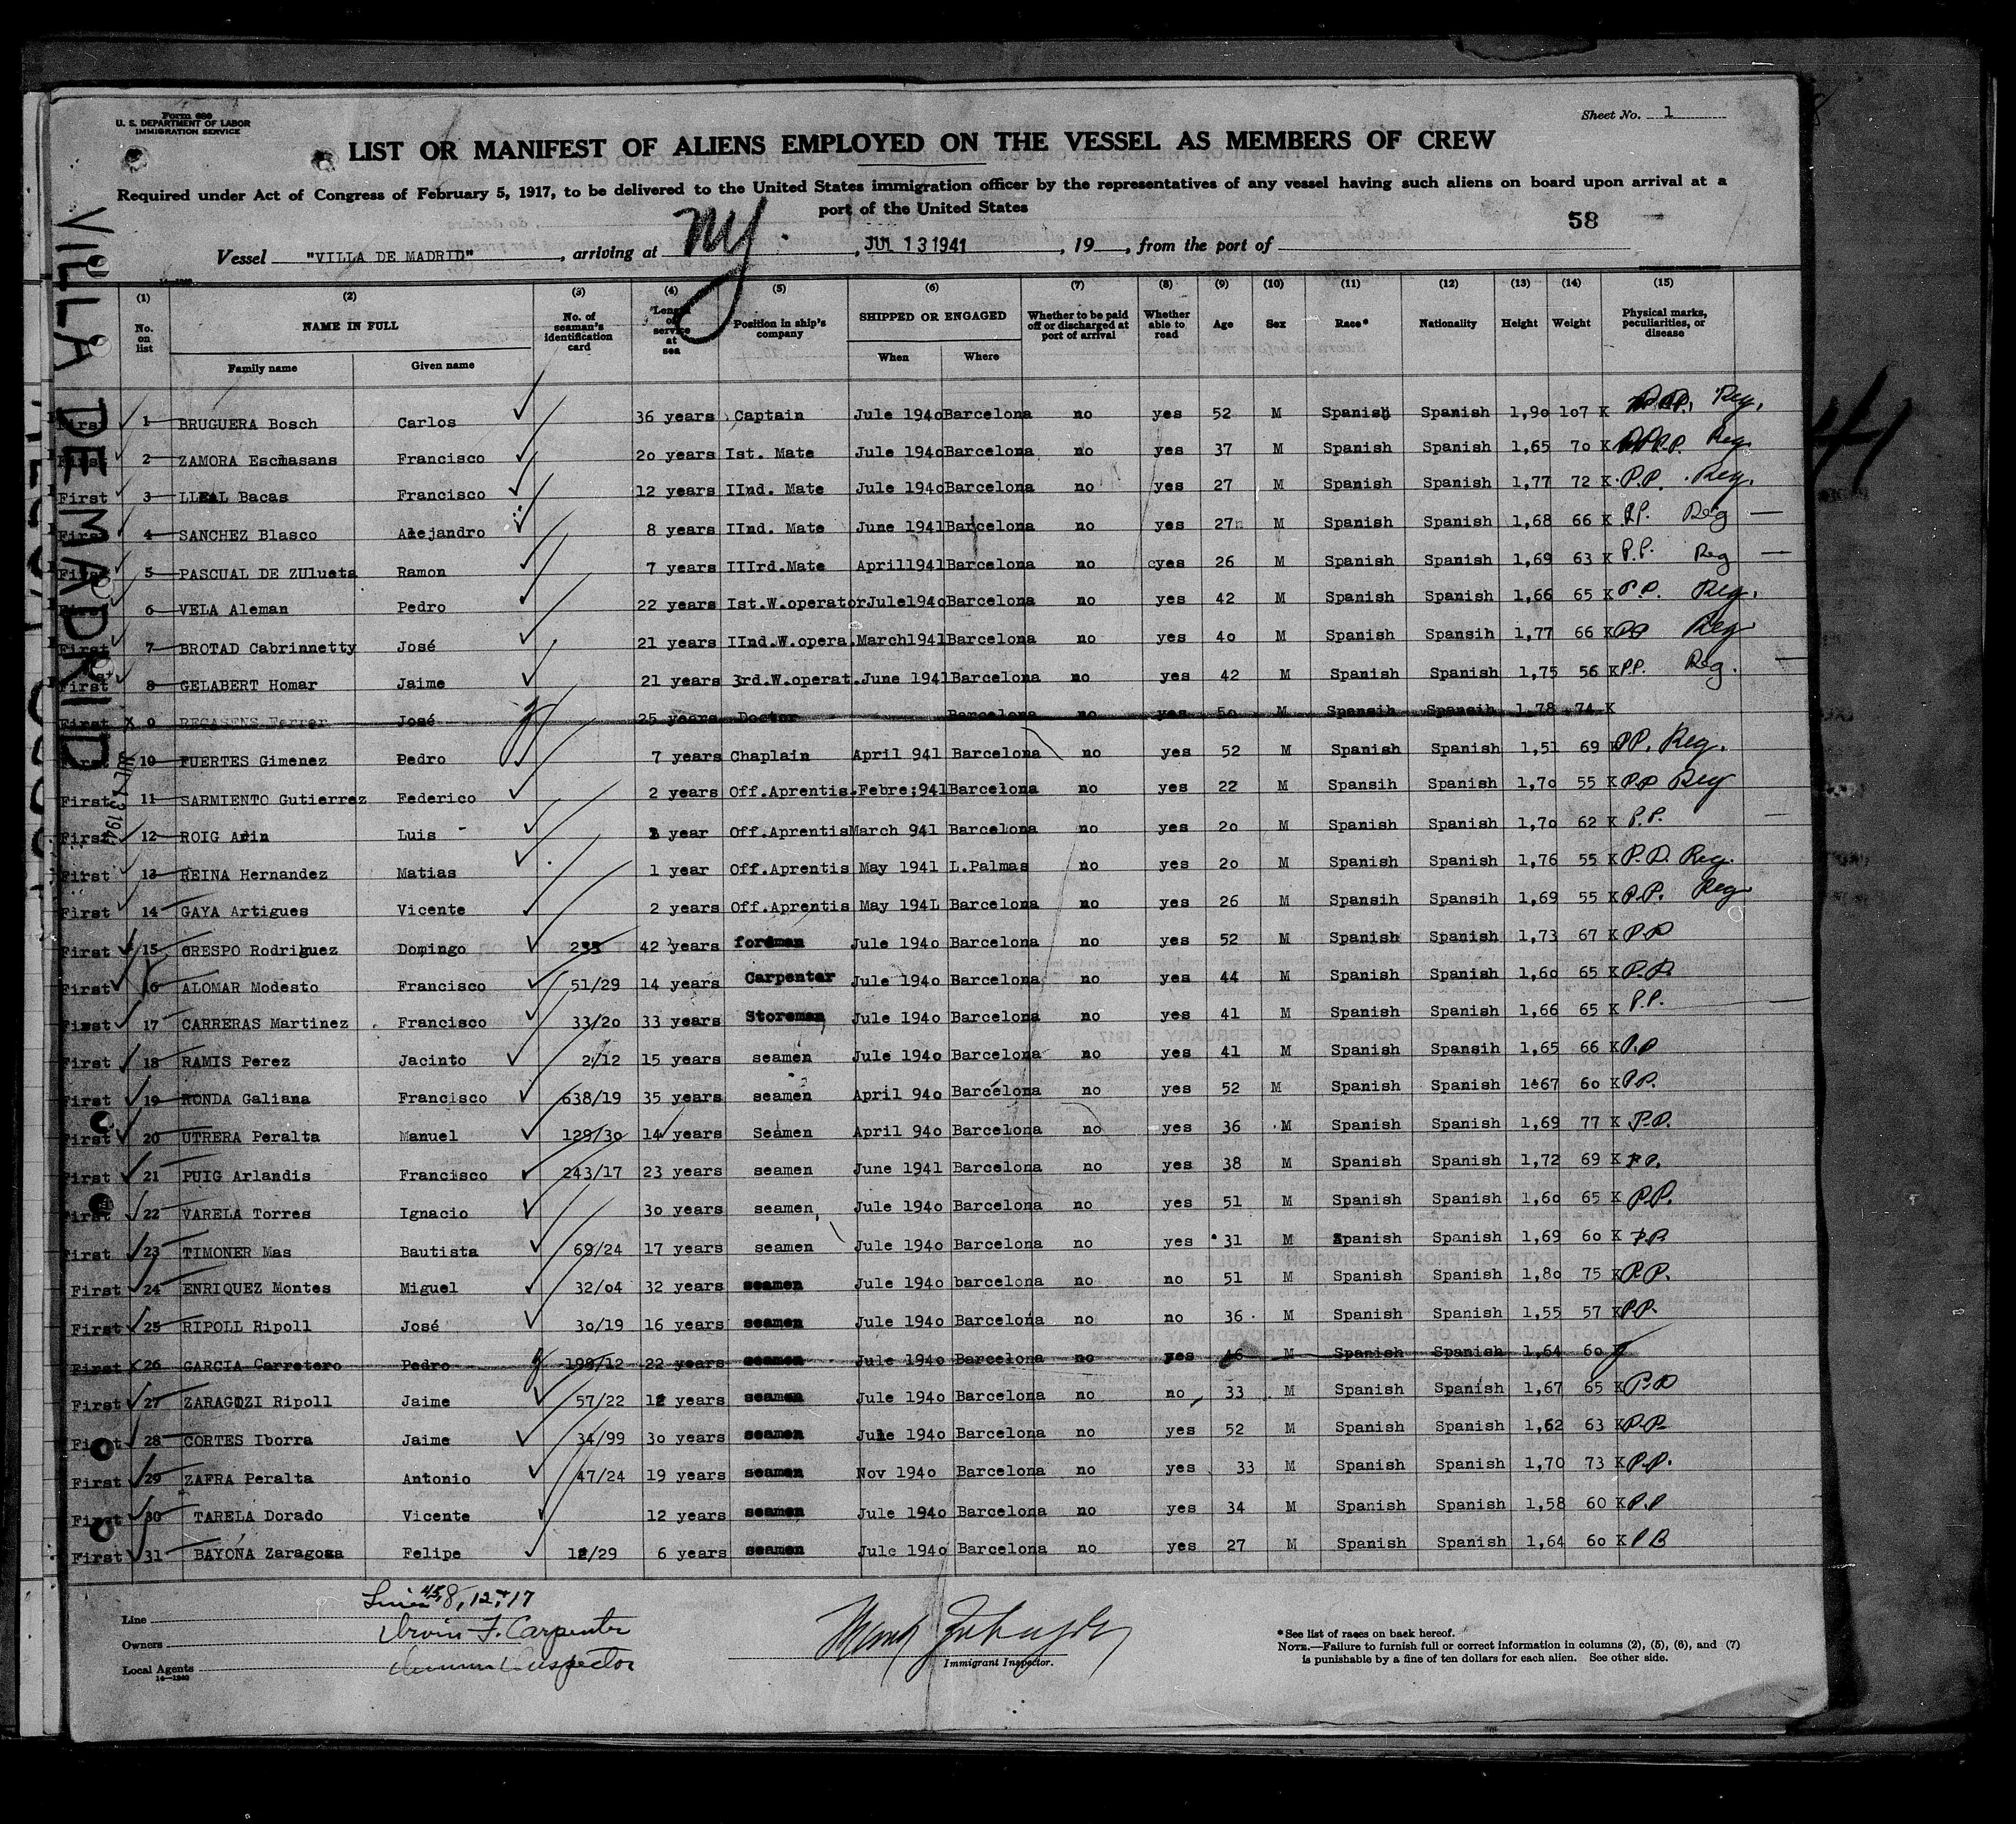 Form 689
U. S. DEPARTMENT OF LABOR
IMMIGRATION SERVICE
Sheet No. 1
LIST OR MANIFEST OF ALIENS EMPLOYED ON THE VESSEL AS MEMBERS OF CREW
Required under Act of Congress of February 5, 1917, to be delivered to the United States immigration officer by the representatives of any vessel having such aliens on board upon arrival at a
port of the United States
58
Vessel "VILLA DE MADRID", arriving at NY., JUL 13 1941, 19, from the port of
VILLA DE MADRID
JUL 13 1941
41
(1) (2) (3) (4) (5) (6) (7) (8) (9) (10) (11) (12) (13) (14) (15)
No. on list NAME IN FULL No. of seaman's identification card Length of service at sea Position in ship's company SHIPPED OR ENGAGED Whether to be paid off or discharged at port of arrival Whether able to read Age Sex Race* Nationality Height Weight Physical marks, peculiarities, or disease
Family name Given name When Where
First 1 BRUGUERA Bosch Carlos 36 years Captain Jule 1940 Barcelona no yes 52 M Spanish Spanish 1,90 107 K P.P. Reg.
First 2 ZAMORA Eschasans Francisco 20 years Ist. Mate Jule 1940 Barcelona no yes 37 M Spanish Spanish 1,65 70 K P.P. Reg.
First 3 LLEAL Bacas Francisco 12 years IInd. Mate Jule 1940 Barcelona no yes 27 M Spanish Spanish 1,77 72 K P.P. Reg.
First 4 SANCHEZ Blasco Alejandro 8 years IInd. Mate June 1941 Barcelona no yes 27 M Spanish Spanish 1,68 66 K P.P. Reg
First 5 PASCUAL DE ZUlueta Ramon 7 years IIIrd.Mate April1941 Barcelona no yes 26 M Spanish Spanish 1,69 63 K P.P. Reg
First 6 VELA Aleman Pedro 22 years Ist.W.operator Jule1940 Barcelona no yes 42 M Spanish Spanish 1,66 65 K P.P. Reg.
First 7 BROTAD Cabrinnetty José 21 years IInd.W.opera. March1941 Barcelona no yes 40 M Spanish Spansih 1,77 66 K PP Reg
First 8 GELABERT Homar Jaime 21 years 3rd.W.operat. June 1941 Barcelona no yes 42 M Spanish Spanish 1,75 56 K P.P. Reg.
First x 9 RECASENS Ferrer José 25 years Doctor Barcelona no yes 50 M Spansih Spansih 1,78 74 K
First 10 FUERTES Gimenez Pedro 7 years Chaplain April 941 Barcelona no yes 52 M Spanish Spanish 1,51 69 K P.P. Reg.
First 11 SARMIENTO Gutierrez Federico 2 years Off.Aprentis. Febre;941 Barcelona no yes 22 M Spansih Spanish 1,70 55 K P.P Reg
First 12 ROIG Arin Luis year Off.Aprentis March 941 Barcelona no yes 20 M Spanish Spanish 1,70 62 K P.P.
First 13 REINA Hernandez Matias 1 year Off.Aprentis May 1941 L.Palmas no yes 20 M Spanish Spanish 1,76 55 K P.P. Reg.
First 14 GAYA Artigues Vicente 2 years Off.Aprentis May 194L Barcelona no yes 26 M Spansih Spansih 1,69 55 K P.P. Reg
First 15 CRESPO Rodriguez Domingo 42 years foreman Jule 1940 Barcelona no yes 52 M Spanish Spanish 1,73 67 K P.P
First 16 ALOMAR Modesto Francisco 51/29 14 years Carpenter Jule 1940 Barcelona no yes 44 M Spanish Spanish 1,60 65 K P.P.
First 17 CARRERAS Martinez Francisco 33/20 33 years Storeman Jule 1940 Barcelona no yes 41 M Spanish Spanish 1,66 65 K P.P.
First 18 RAMIS Perez Jacinto 2/12 15 years seamen Jule 1940 Barcelona no yes 41 M Spanish Spansih 1,65 66 K P.P
First 19 RONDA Galiana Francisco 638/19 35 years seamen April 940 Barcelona no yes 52 M Spanish Spanish 1,67 60 K P.P.
First 20 UTRERA Peralta Manuel 129/30 14 years Seamen April 940 Barcelona no yes 36 M Spanish Spanish 1,69 77 K P.P.
First 21 PUIG Arlandis Francisco 243/17 23 years seamen June 1941 Barcelona no yes 38 M Spanish Spanish 1,72 69 K P.P.
First 22 VARELA Torres Ignacio 30 years seamen Jule 1940 Barcelona no yes 51 M Spanish Spanish 1,60 65 K P.P.
First 23 TIMONER Mas Bautista 69/24 17 years seamen Jule 1940 Barcelona no yes 31 M Spanish Spanish 1,69 60 K P.P
First 24 ENRIQUEZ Montes Miguel 32/04 32 years seamen Jule 1940 barcelona no no 51 M Spanish Spanish 1,80 75 K P.P.
First 25 RIPOLL Ripoll José 30/19 16 years seamen Jule 1940 Barcelona no no 36 M Spanish Spanish 1,55 57 K P.P.
First x 26 GARCIA Carretero Pedro 199/12 22 years seamen Jule 1940 Barcelona no yes 46 M Spanish Spanish 1,64 60
First 27 ZARAGOZI Ripoll Jaime 57/22 years seamen Jule 1940 Barcelona no no 33 M Spanish Spanish 1,67 65 K P.P
First 28 CORTES Iborra Jaime 34/99 30 years seamen Jule 1940 Barcelona no yes 52 M Spanish Spanish 1,62 63 K P.P.
First 29 ZAFRA Peralta Antonio 47/24 19 years seamen Nov 1940 Barcelona no yes 33 M Spanish Spanish 1,70 73 K P.P.
First 30 TARELA Dorado Vicente 12 years seamen Jule 1940 Barcelona no yes 34 M Spanish Spanish 1,58 60 K P.P
First 31 BAYONA Zaragoza Felipe 12/29 6 years seamen Jule 1940 Barcelona no yes 27 M Spanish Spanish 1,64 60 K P.P
Lines 4,5,8,12,+17
Line
Irvin F. Carpenter
Owners
Local Agents
Inspector
14—1240
Immigrant Inspector.
*See list of races on back hereof.
NOTE.—Failure to furnish full or correct information in columns (2), (5), (6), and (7)
is punishable by a fine of ten dollars for each alien. See other side.